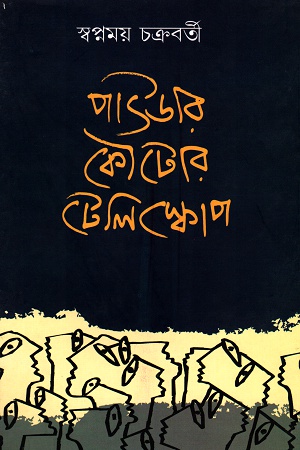 স্বপ্নময় চক্রবর্তী
পাউডার
কৌটোর
টেলিস্কোপ